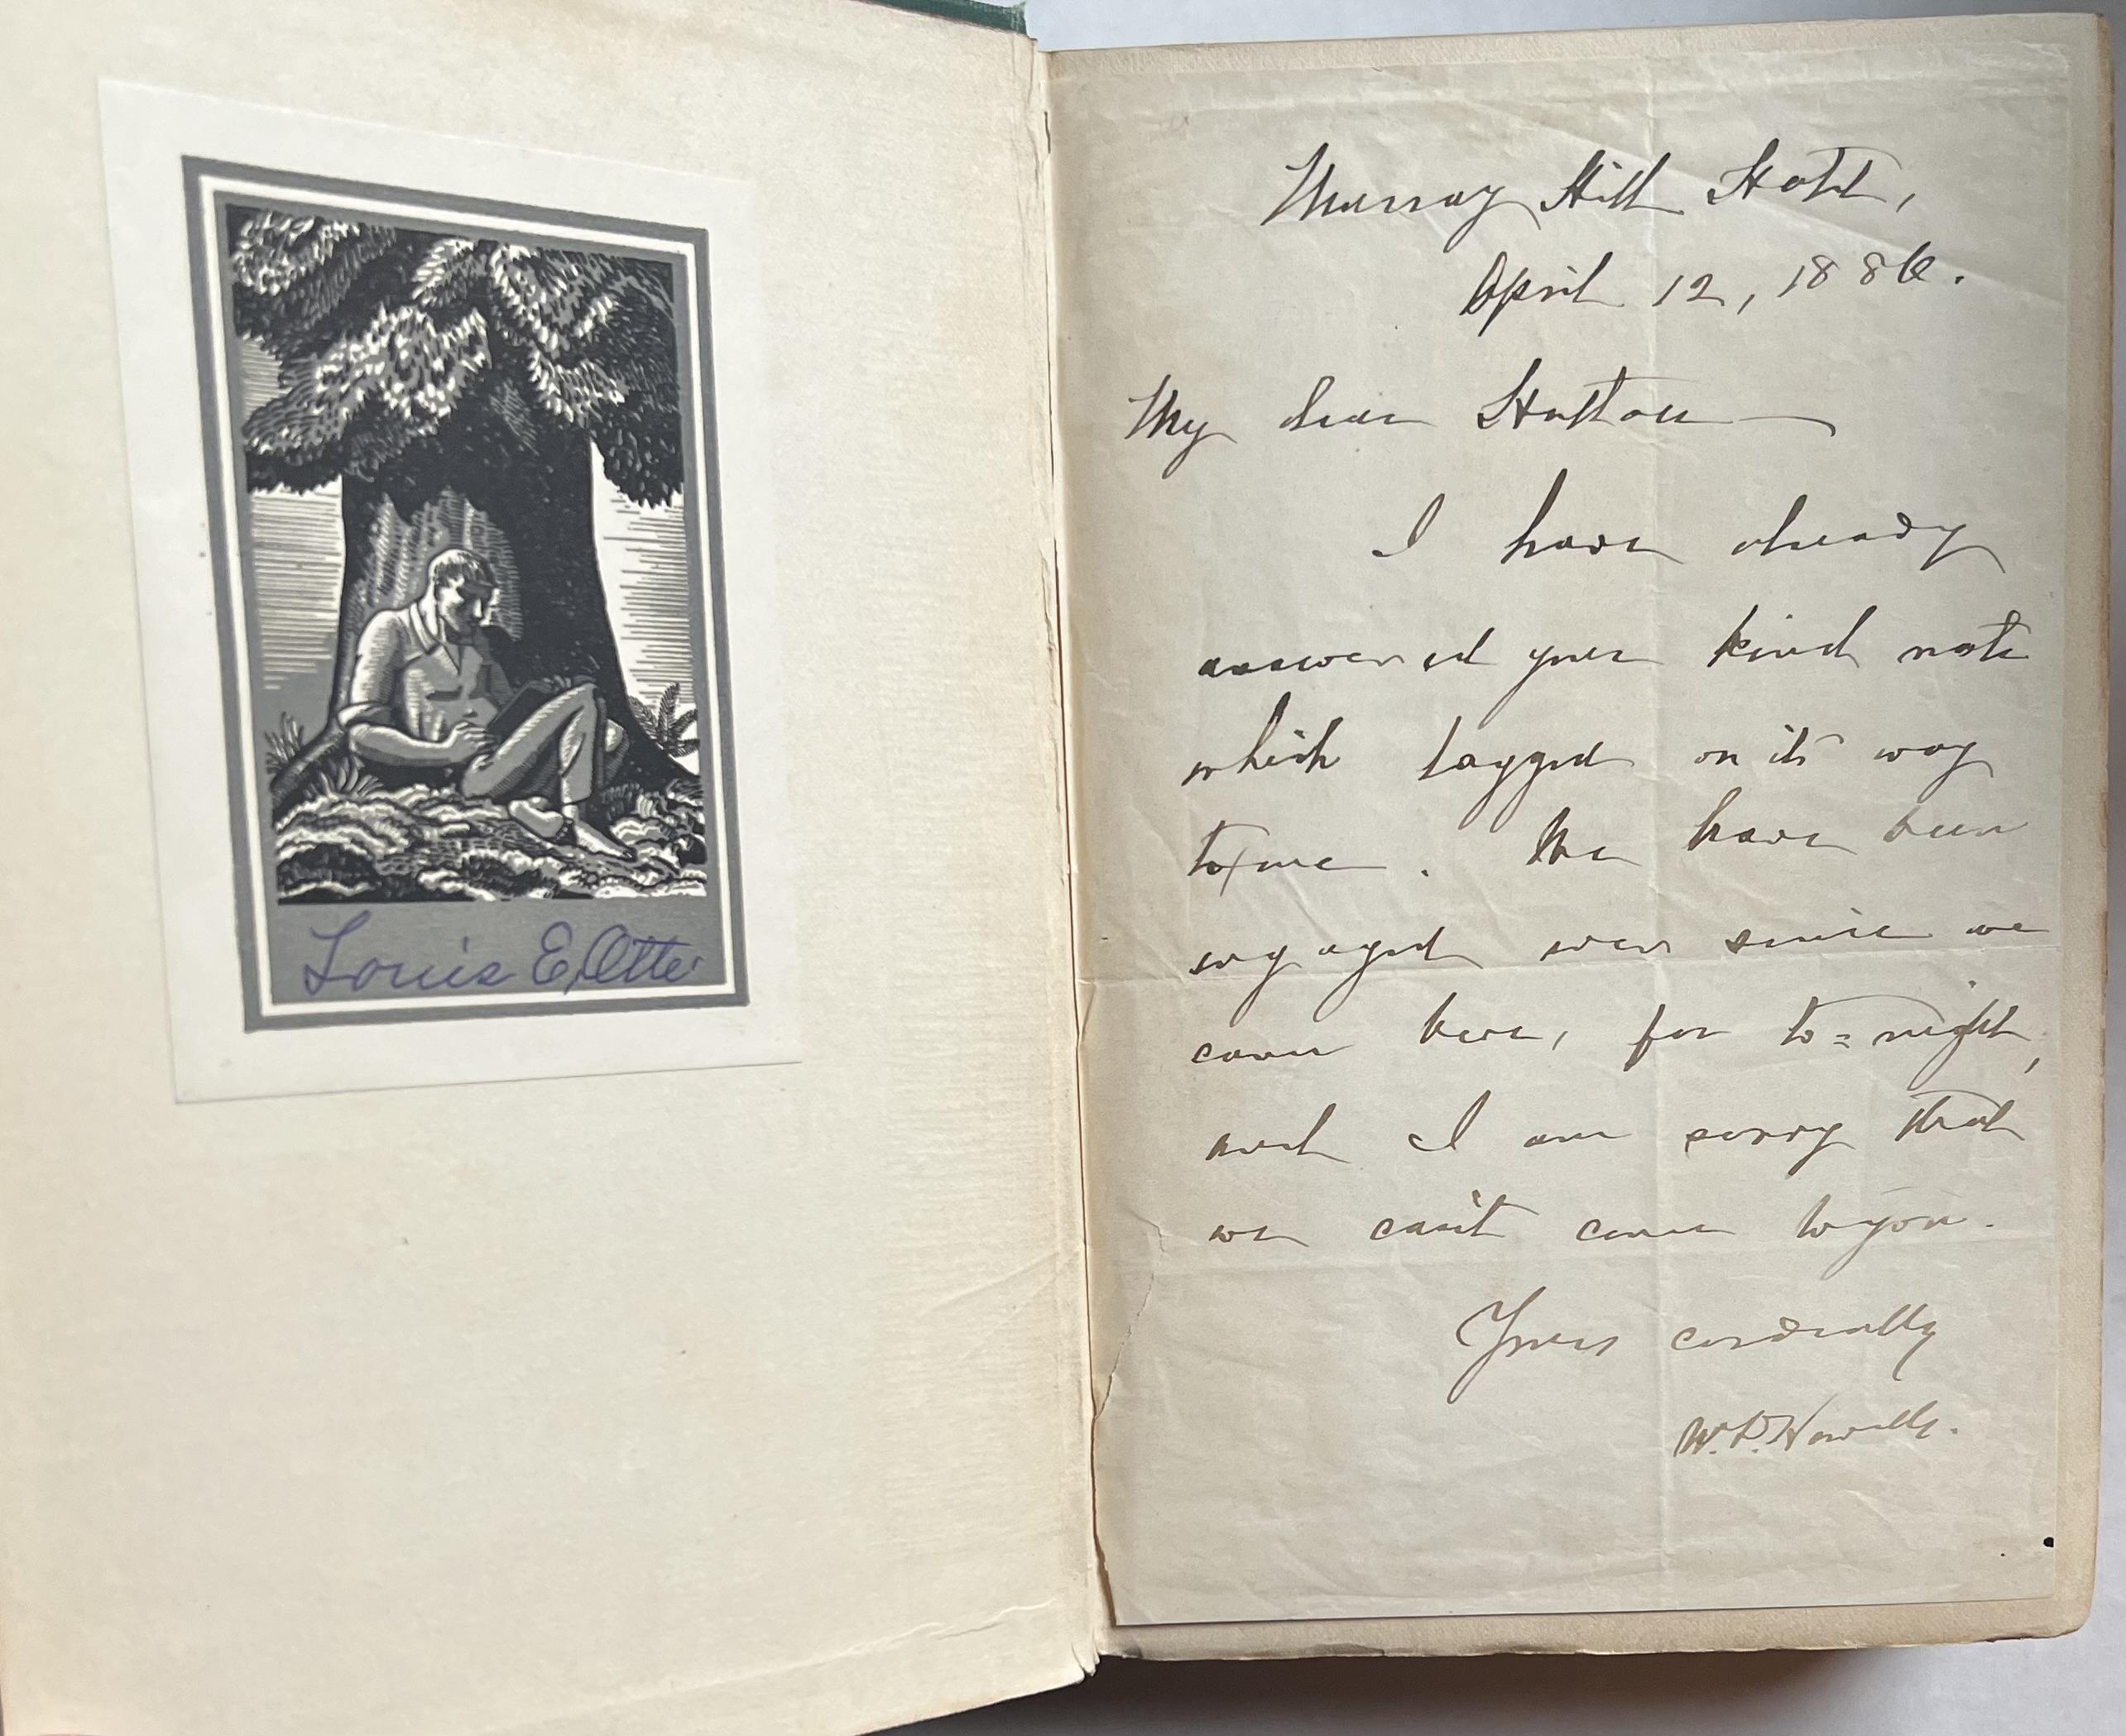 Louis E. Otte
Murray Hill Hotel,
April 12, 1886.
My dear Hutton—
I have already
answered your kind note
which lagged on its way
to me. We have been
engaged ever since we
came here, for to=night,
and I am sorry that
we can't come to you.
Yours cordially
W. D. Howells.